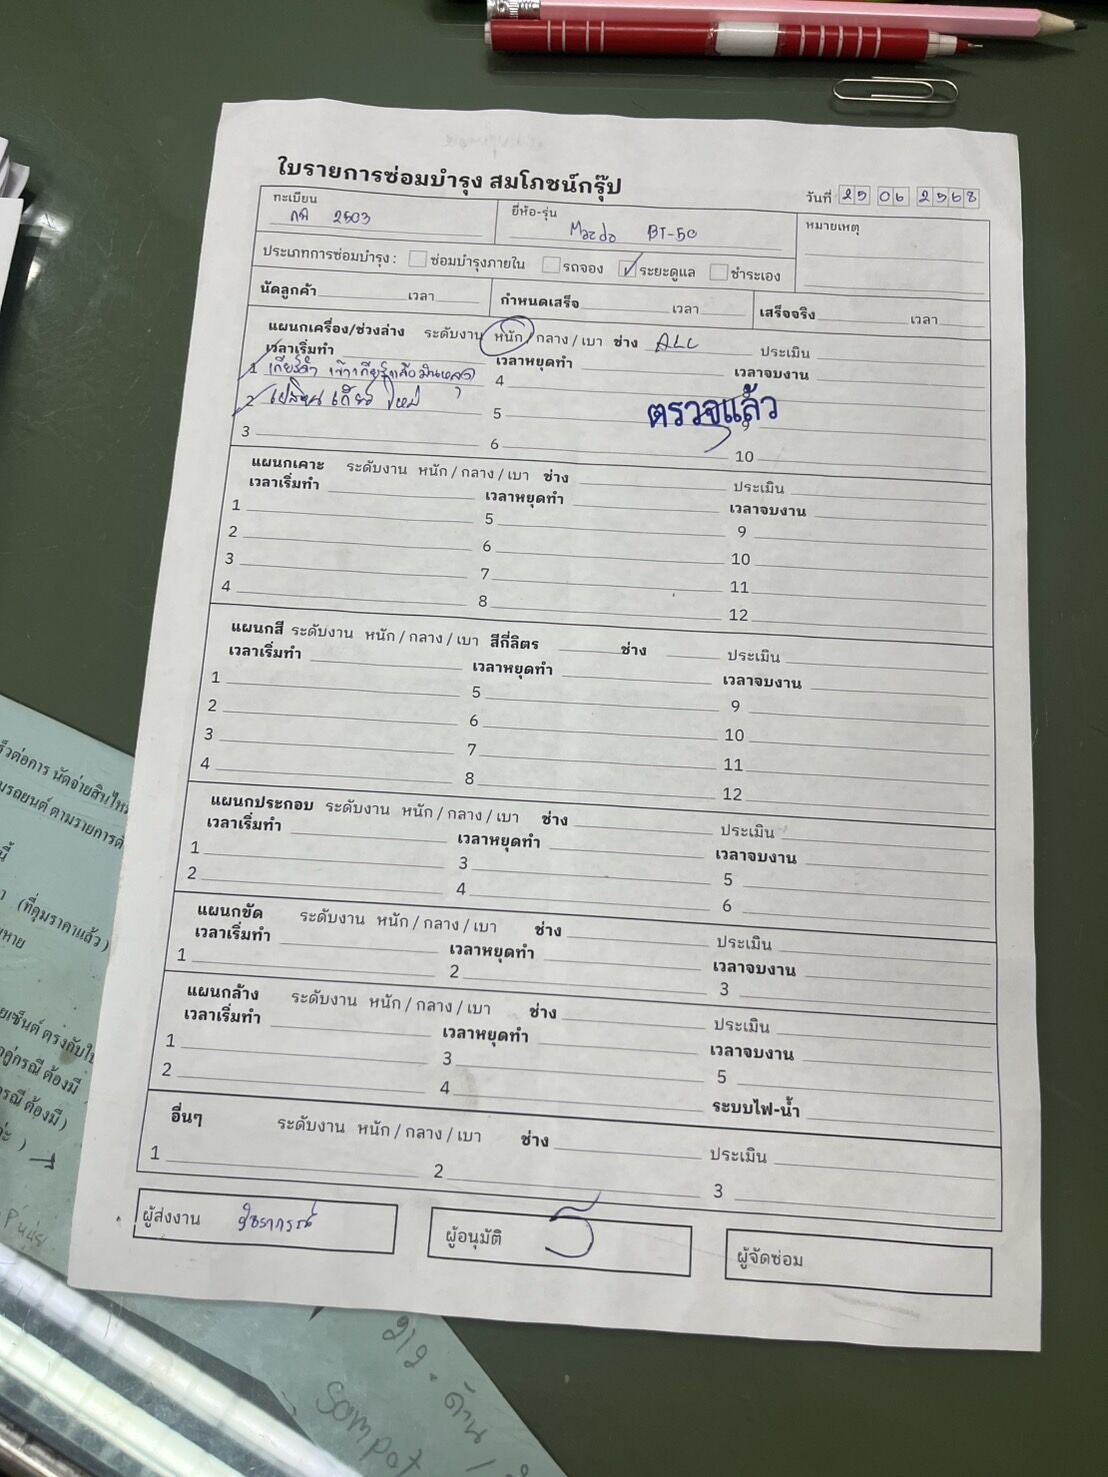 ใบรายการซ่อมบำรุง สมโภชน์กรุ๊ป
วันที่ 25 06 2568
ทะเบียน 2503
ยี่ห้อ-รุ่น Mazda BT-50
หมายเหตุ
ประเภทการซ่อมบำรุง : ซ่อมบำรุงภายใน รถจอง ระยะดูแล ชำระเอง
นัดลูกค้า เวลา กำหนดเสร็จ เวลา เสร็จจริง เวลา
แผนกเครื่อง/ช่วงล่าง ระดับงาน หนัก / กลาง / เบา ช่าง ALL ประเมิน
เวลาเริ่มทำ เวลาหยุดทำ เวลาจบงาน
1 เข้าเกียร์แล้วมันหลุด 4
2 เปลี่ยน เกียร์ ใหม่ 5 9
ตรวจแล้ว
3 6 10
แผนกเคาะ ระดับงาน หนัก / กลาง / เบา ช่าง ประเมิน
เวลาเริ่มทำ เวลาหยุดทำ เวลาจบงาน
1 5 9
2 6 10
3 7 11
4 8 12
แผนกสี ระดับงาน หนัก / กลาง / เบา สีกี่ลิตร ช่าง ประเมิน
เวลาเริ่มทำ เวลาหยุดทำ เวลาจบงาน
1 5 9
2 6 10
3 7 11
4 8 12
แผนกประกอบ ระดับงาน หนัก / กลาง / เบา ช่าง ประเมิน
เวลาเริ่มทำ เวลาหยุดทำ เวลาจบงาน
1 3 5
2 4 6
แผนกขัด ระดับงาน หนัก / กลาง / เบา ช่าง ประเมิน
เวลาเริ่มทำ เวลาหยุดทำ เวลาจบงาน
1 2 3
แผนกล้าง ระดับงาน หนัก / กลาง / เบา ช่าง ประเมิน
เวลาเริ่มทำ เวลาหยุดทำ เวลาจบงาน
1 3 5
2 4 ระบบไฟ-น้ำ
อื่นๆ ระดับงาน หนัก / กลาง / เบา ช่าง ประเมิน
1 2 3
ผู้ส่งงาน
ผู้อนุมัติ
ผู้จัดซ่อม
ร็วต่อการ นัดจ่ายสินไหม
มรถยนต์ ตามรายการดั
นี้
(ที่คุมราคาแล้ว)
ยหาย
ยเซ็นต์ ตรงกับใบ
คู่กรณี ต้องมี
รณี ต้องมี )
212. ด้าน /
Sompot